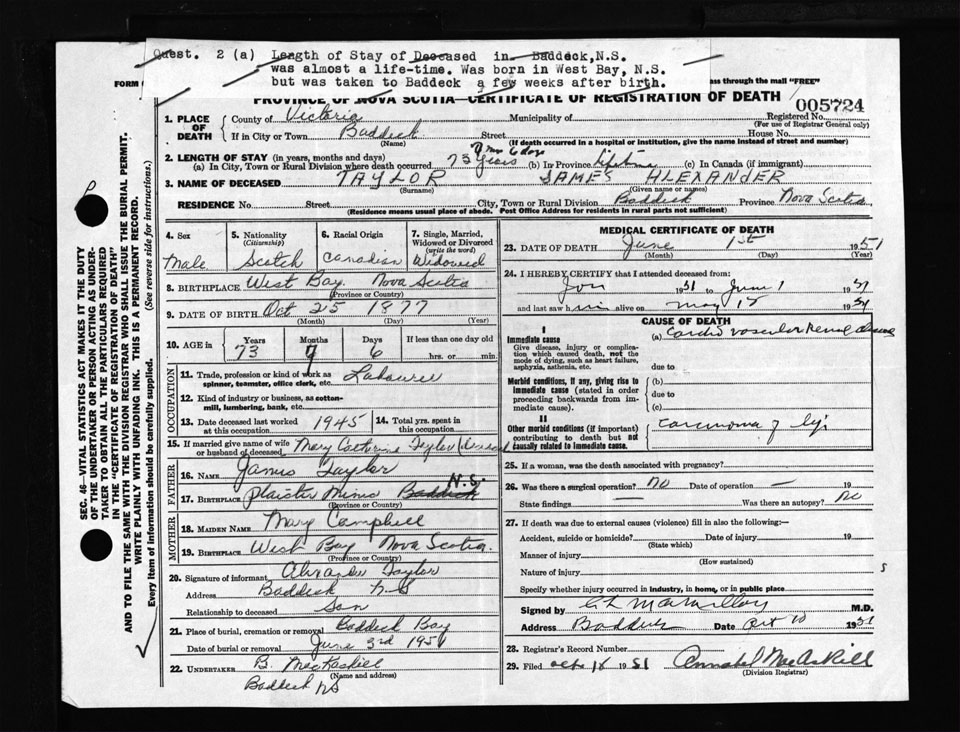 Quest. 2 (a) Length of Stay of Deceased in Baddeck, N.S.
was almost a life-time. Was born in West Bay, N.S.
but was taken to Baddeck a few weeks after birth.
FORM
ass through the mail "FREE"
PROVINCE OF NOVA SCOTIA—CERTIFICATE OF REGISTRATION OF DEATH
005724
1. PLACE OF DEATH
County of Victoria Municipality of Registered No.
(For use of Registrar General only)
If in City or Town Baddeck Street House No.
(Name) (If death occurred in a hospital or institution, give the name instead of street and number)
2. LENGTH OF STAY (in years, months and days)
(a) In City, Town or Rural Division where death occurred 73 years 7 mo 6 days (b) In Province lifetime (c) In Canada (if immigrant)
3. NAME OF DECEASED TAYLOR JAMES ALEXANDER
(Surname) (Given name or names)
RESIDENCE No. Street City, Town or Rural Division Baddeck Province Nova Scotia
(Residence means usual place of abode. Post Office Address for residents in rural parts not sufficient)
4. Sex
Male
5. Nationality
(Citizenship)
Scotch
6. Racial Origin
Canadian
7. Single, Married, Widowed or Divorced
(write the word)
Widowed
8. BIRTHPLACE West Bay. Nova Scotia
(Province or Country)
9. DATE OF BIRTH Oct 25 1877
(Month) (Day) (Year)
10. AGE in Years Months Days If less than one day old
73 7 6 hrs. or min.
OCCUPATION
11. Trade, profession or kind of work as Labourer
spinner, teamster, office clerk, etc.
12. Kind of industry or business, as cotton-
mill, lumbering, bank, etc.
13. Date deceased last worked at this occupation 1945 14. Total yrs. spent in this occupation
15. If married give name of wife or husband of deceased Mary Catherine Taylor (Deceased
FATHER
16. NAME James Taylor
17. BIRTHPLACE Plaister Mines Baddeck N.S.
(Province or Country)
MOTHER
18. MAIDEN NAME Mary Campbell
19. BIRTHPLACE West Bay Nova Scotia.
(Province or Country)
20. Signature of informant Alexander Taylor
Address Baddeck N S
Relationship to deceased Son
21. Place of burial, cremation or removal Baddeck Bay
Date of burial or removal June 3rd 1951
22. UNDERTAKER B. MacKaskill
(Name and address)
Baddeck NS
MEDICAL CERTIFICATE OF DEATH
23. DATE OF DEATH June 1st 1951
(Month) (Day) (Year)
24. I HEREBY CERTIFY that I attended deceased from:
Jan 1951 to June 1 1951
and last saw him alive on May 15 1951
CAUSE OF DEATH
I
Immediate cause (a) Cardio vascular Renal disease
Give disease, injury or complica-
tion which caused death, not the
mode of dying, such as heart failure,
asphyxia, asthenia, etc. due to
Morbid conditions, if any, giving rise to (b)
immediate cause (stated in order due to
proceeding backwards from im-
mediate cause). (c)
II
Other morbid conditions (if important) Carcinoma of lip
contributing to death but not
causally related to immediate cause.
25. If a woman, was the death associated with pregnancy?
26. Was there a surgical operation? NO Date of operation — 19
State findings — Was there an autopsy? NO
27. If death was due to external causes (violence) fill in also the following:—
Accident, suicide or homicide? Date of injury 19
(State which)
Manner of injury
(How sustained)
Nature of injury
Specify whether injury occurred in industry, in home, or in public place
Signed by C L MacMillan M.D.
Address Baddeck Date Oct 10 1951
28. Registrar's Record Number
29. Filed Oct 18 1951 Annabel MacAskill
(Division Registrar)
SEC. 46—VITAL STATISTICS ACT MAKES IT THE DUTY
OF THE UNDERTAKER OR PERSON ACTING AS UNDER-
TAKER TO OBTAIN ALL THE PARTICULARS REQUIRED
IN THE "CERTIFICATE OF REGISTRATION OF DEATH"
AND TO FILE THE SAME WITH THE DIVISION REGISTRAR WHO SHALL ISSUE THE BURIAL PERMIT.
WRITE PLAINLY WITH UNFADING INK. THIS IS A PERMANENT RECORD.
Every item of information should be carefully supplied. (See reverse side for instructions.)